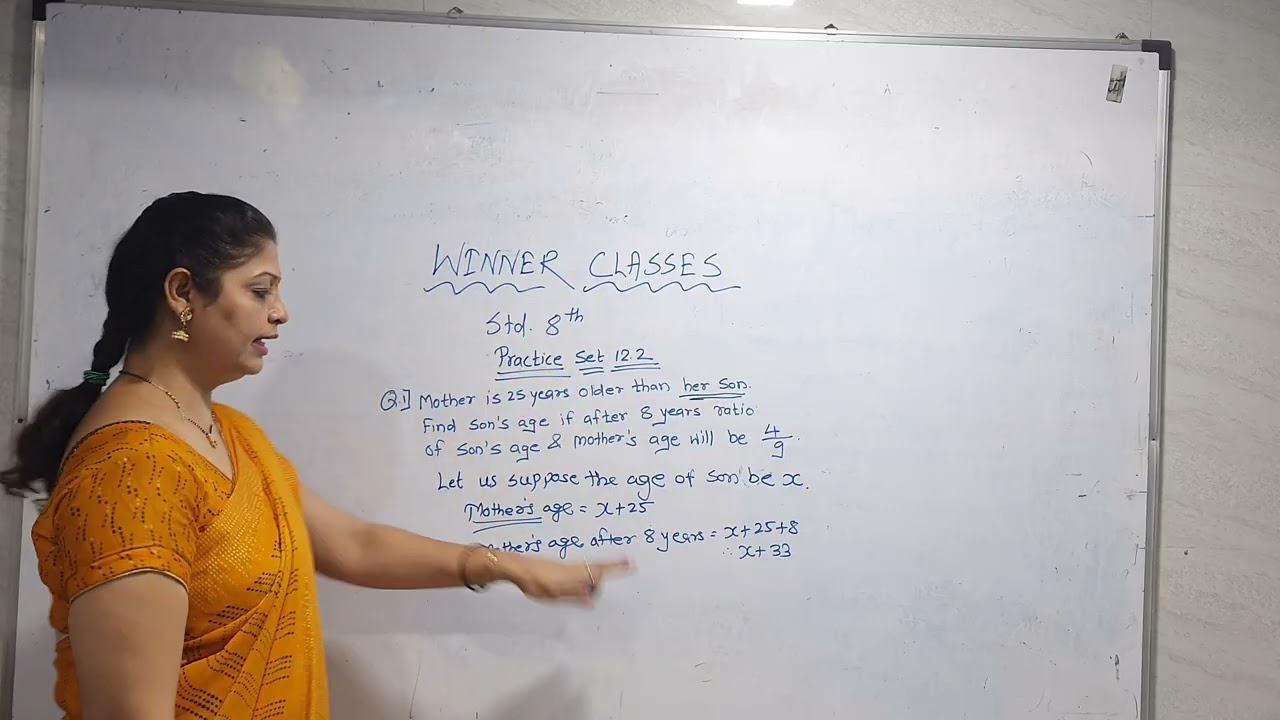 WINNER CLASSES
Std. 8th
Practice Set 12.2
Q.1] Mother is 25 years older than her son.
Find son's age if after 8 years ratio
of son's age & mother's age will be 4/9.
Let us suppose the age of son be x.
Mother's age = x+25
age after 8 years = x+25+8
∴ x+33